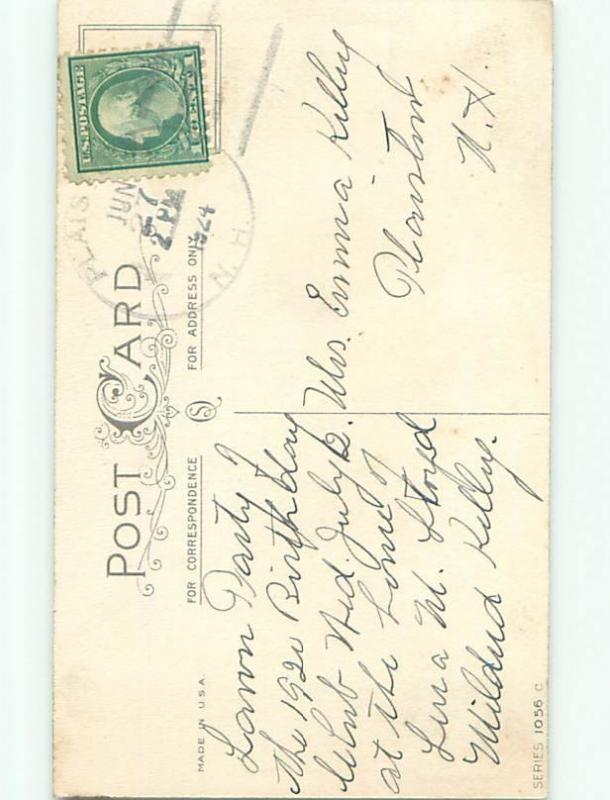 POST CARD
FOR CORRESPONDENCE
FOR ADDRESS ONLY
MADE IN U.S.A.
U.S. POSTAGE
1 CENT 1
PLAIS
JUN
27
2 PM
1924
N.H.
Lawn Party
the 1920 Birthday
Club Wed. July 2.
at the home of
Lena M. Stord
Mildred Kelley.
Mrs. Emma Kelley
Plaistow
N.H.
SERIES 1056 C